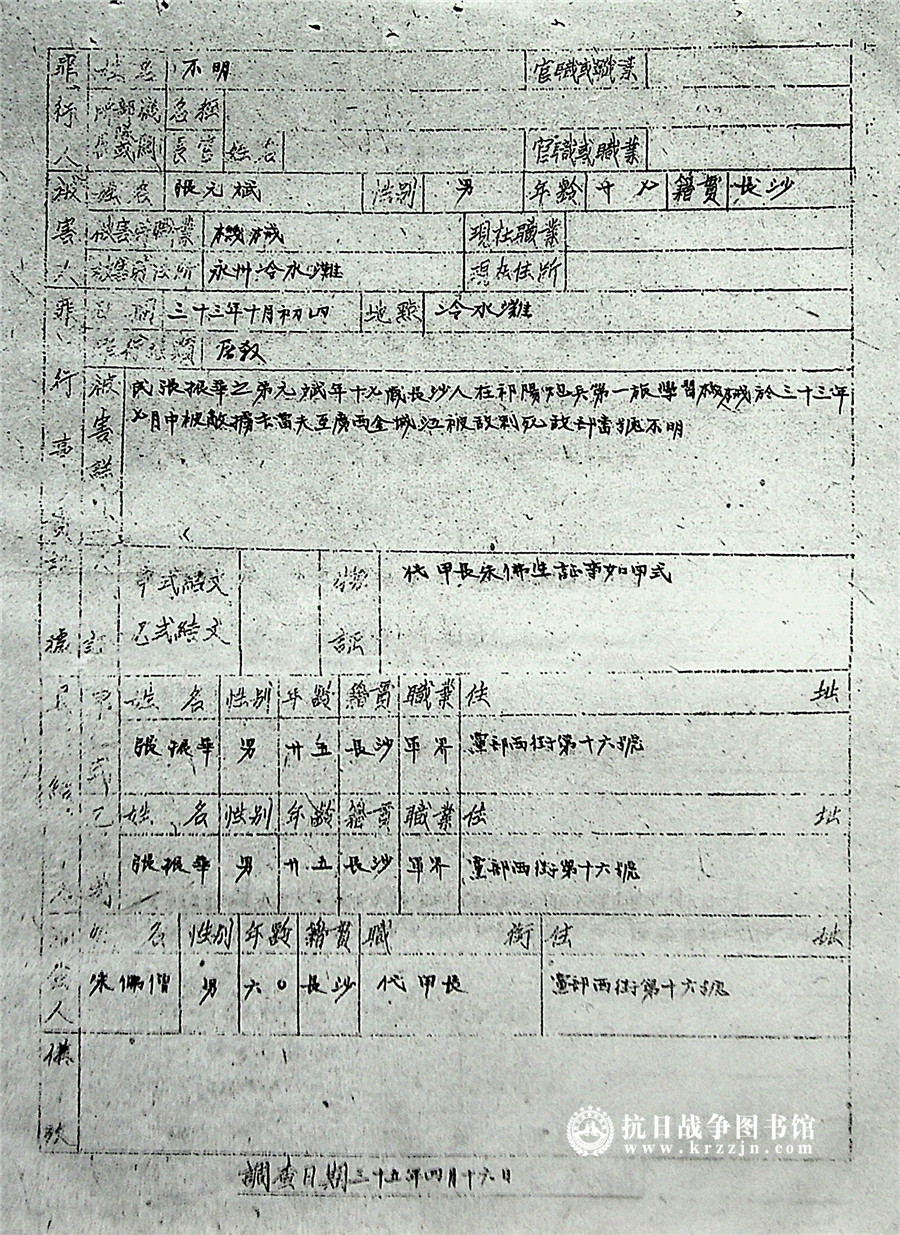 罪行人 姓名 不明 官職或職業
所部或機關 名稱
長官 姓名 官職或職業
被害人 姓名 張元斌 性别 男 年齡 十八 籍貫 長沙
被害時職業 機械 現在職業
被害時住所 永州冷水灘 現在住所
罪行事實 日期 三十三年十月初四 地點 冷水灘
罪行種類 居殺
被害詳 民張振華之弟元斌年十七歲長沙人在祁陽炮兵第一旅學習機械於三十三年
七月中被敵擄去當夫至廣西金城江被敵刺死敵部番號不明
甲式結文 物証 代甲長朱佛生証事如甲式
乙式結文
甲式 姓名 性别 年齡 籍貫 職業 住址
張振華 男 廿五 長沙 軍界 黨部西街第十六號
乙式 姓名 性别 年齡 籍貫 職業 住址
張振華 男 廿五 長沙 軍界 黨部西街第十六號
姓名 性别 年齡 籍貫 職銜 住址
朱佩僧 男 六〇 長沙 代甲長 黨部西街第十六號
備攷
抗日战争图书馆
www.krzzjn.com
調查日期三十五年四月十六日